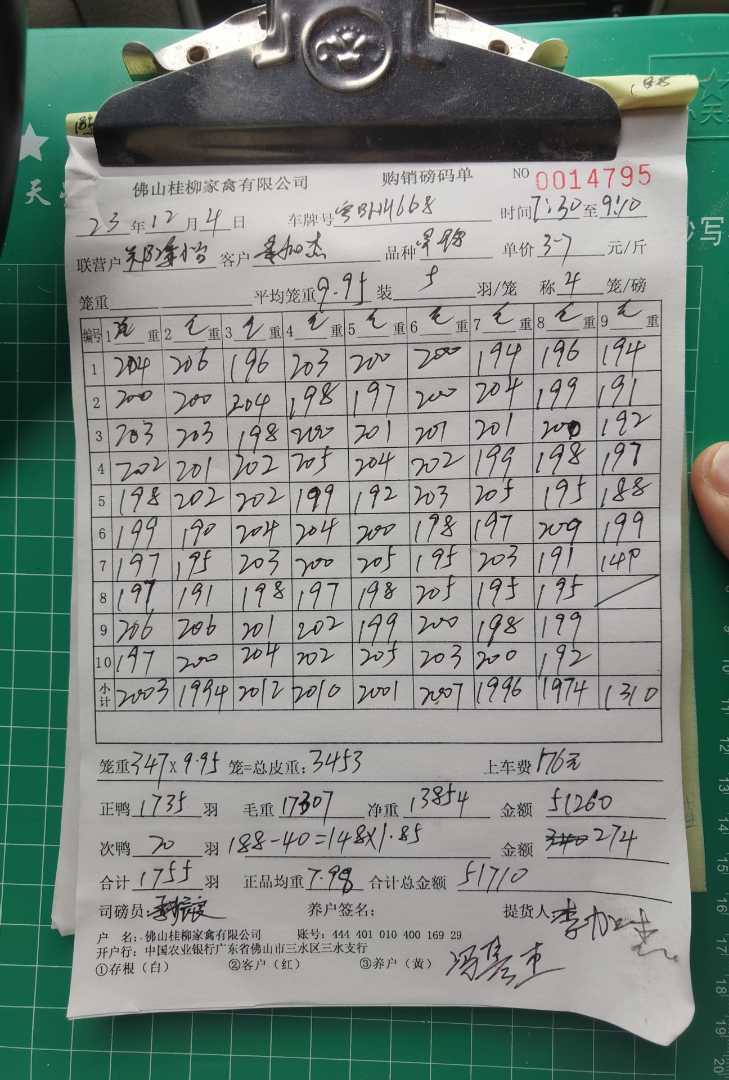 佛山桂柳家禽有限公司 购销磅码单 NO 0014795
23年12月4日 车牌号粤BH4668 时间7:30至9:10
联营户 客户 品种 单价3.7元/斤
笼重 平均笼重9.95装5羽/笼 称4笼/磅
编号 1毛重 2毛重 3毛重 4毛重 5毛重 6毛重 7毛重 8毛重 9毛重
1 204 206 196 203 200 200 194 196 194
2 200 200 204 198 197 200 204 199 191
3 203 203 198 200 201 201 201 200 192
4 202 201 202 205 204 202 199 198 197
5 198 202 202 199 192 203 205 195 188
6 199 190 204 204 200 198 197 209 199
7 197 195 203 200 205 195 203 191 140
8 197 191 198 197 198 205 195 195
9 206 206 201 202 199 200 198 199
10 197 200 204 202 205 203 200 192
小计 2003 1994 2012 2010 2001 2007 1996 1974 1310
笼重347×9.95笼=总皮重:3453 上车费176元
正鸭1735羽 毛重17307 净重13854 金额51260
次鸭20羽 188-40=148×1.85 金额274
合计1755羽 正品均重7.98 合计总金额51710
司磅员: 养户签名: 提货人:李加杰
户 名:佛山桂柳家禽有限公司 账号:444 401 010 400 169 29
开户行:中国农业银行广东省佛山市三水区三水支行
①存根(白) ②客户(红) ③养户(黄)